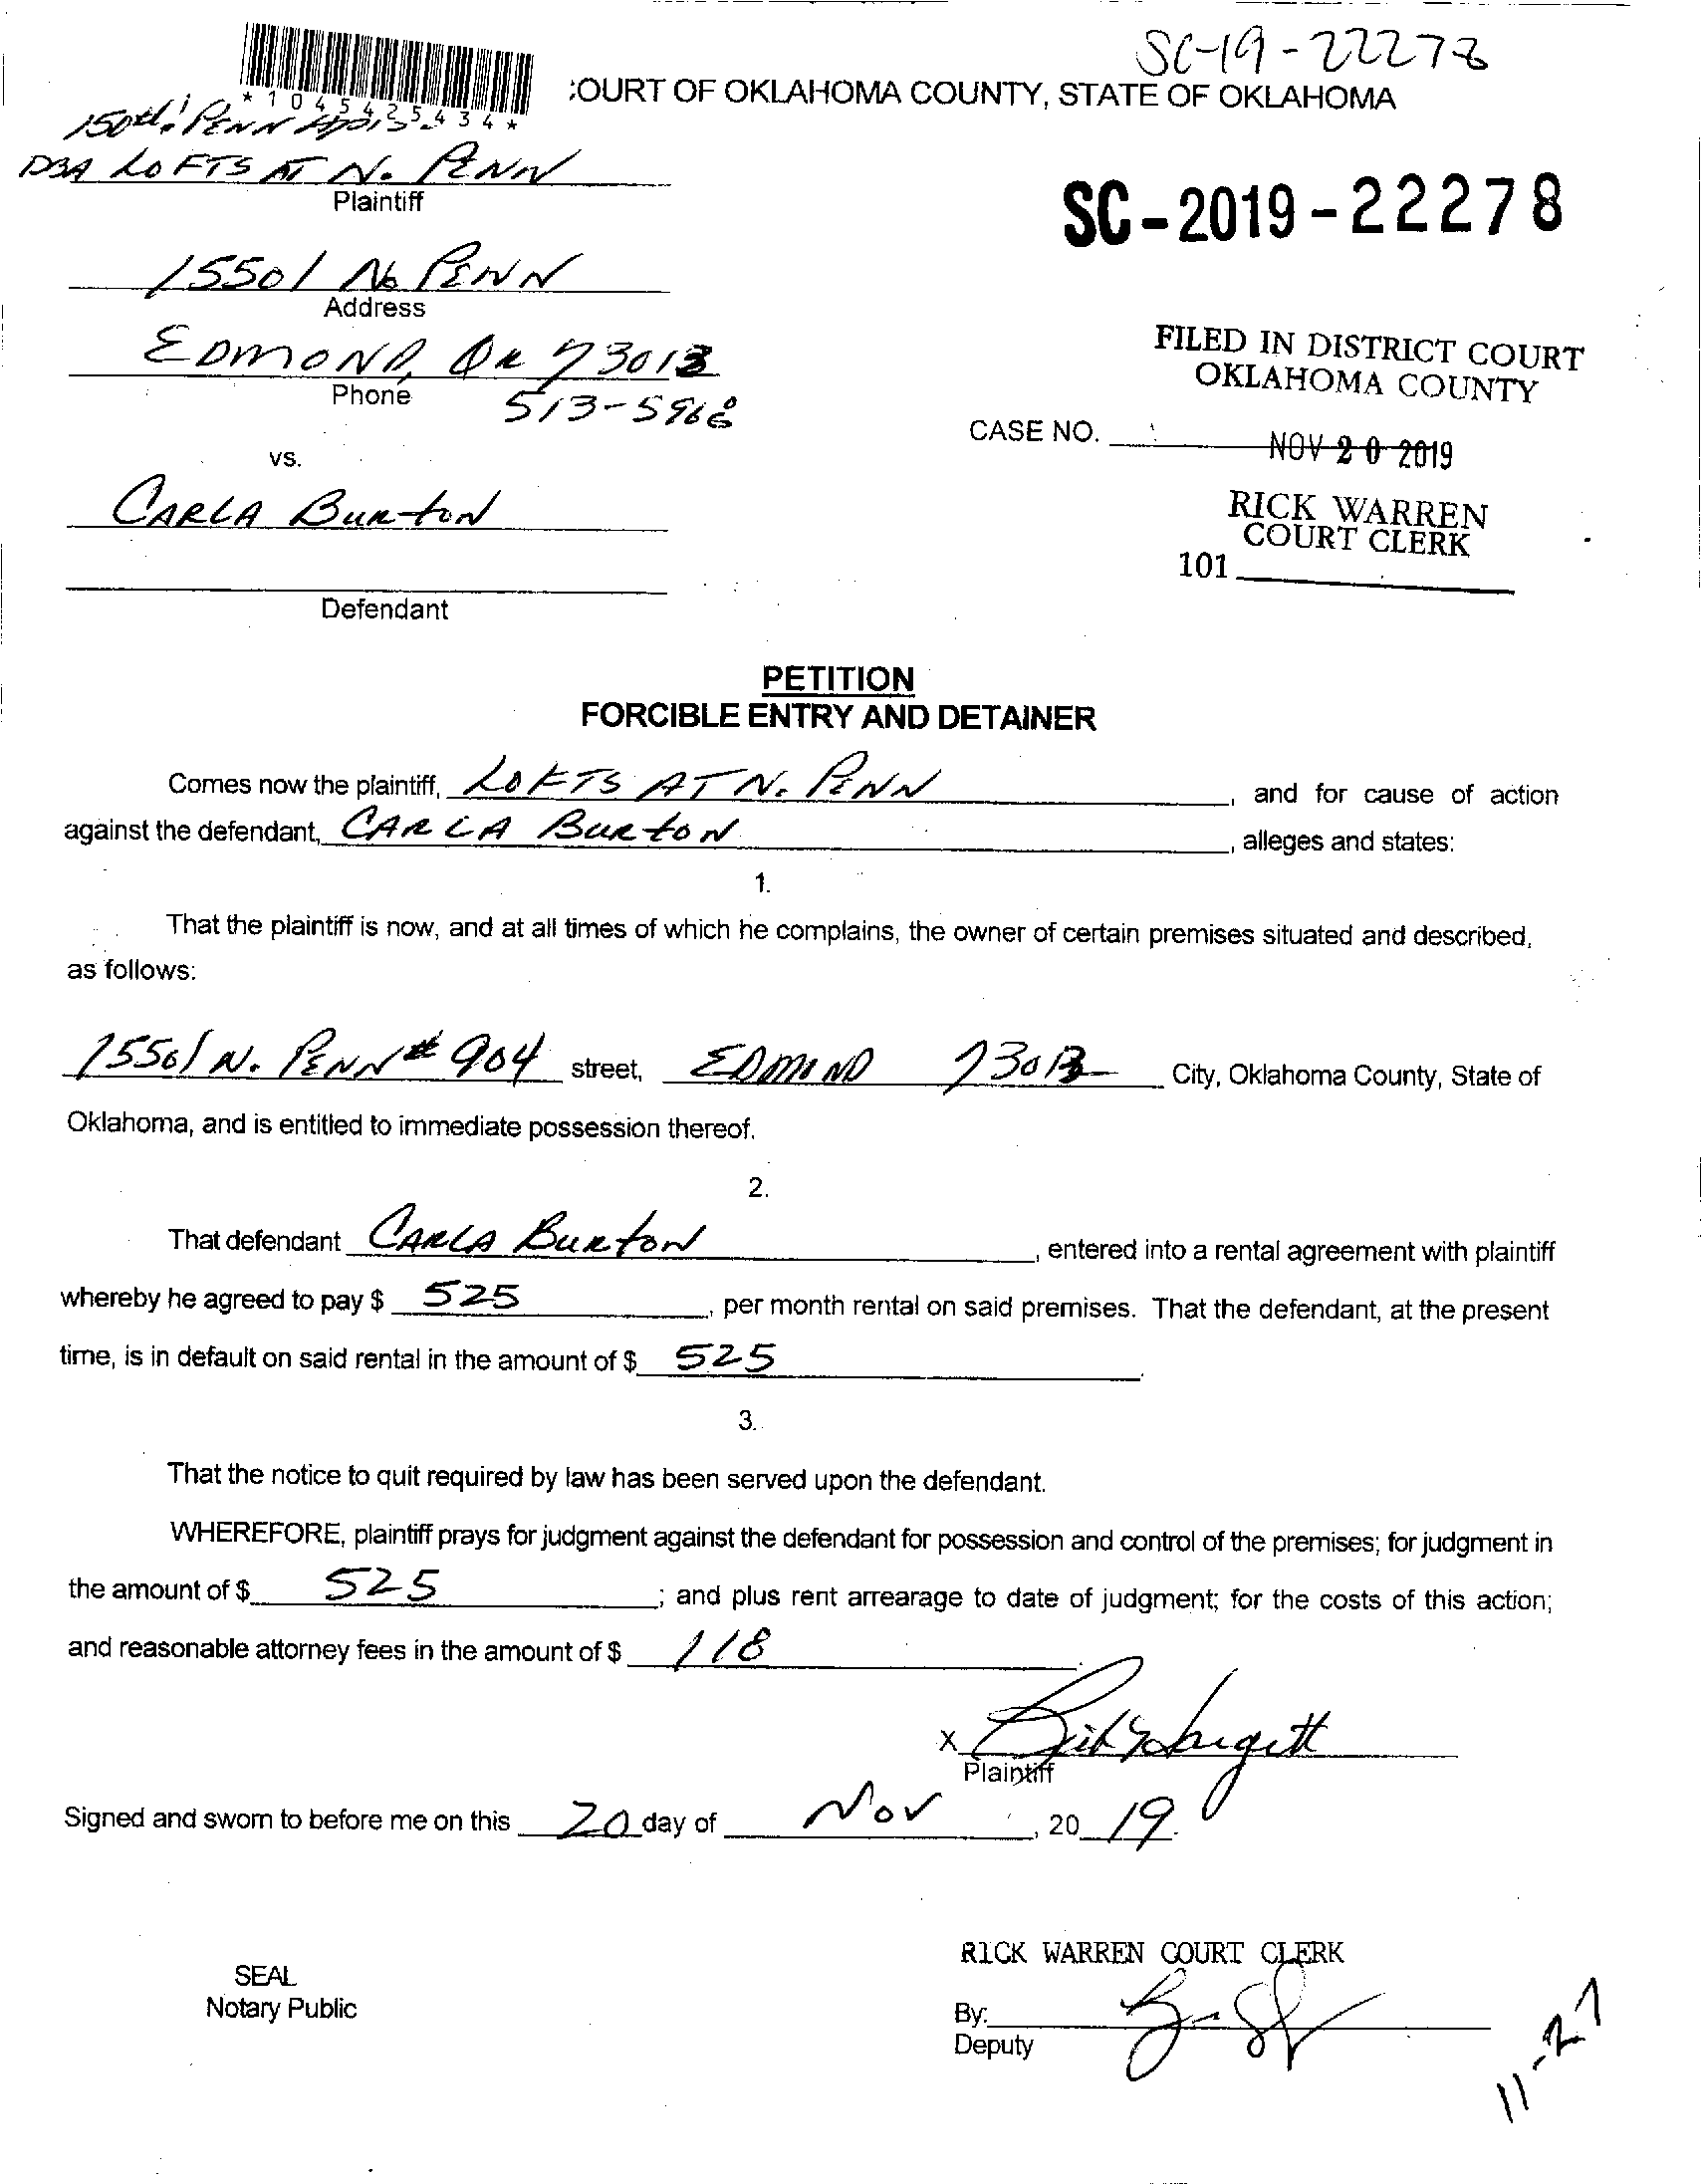 SC-19-22278
*1045425434*
COURT OF OKLAHOMA COUNTY, STATE OF OKLAHOMA
150th & PENN
DBA LOFTS AT N. PENN
Plaintiff
SC-2019-22278
15501 N. PENN
Address
EDMOND, OK 73013
Phone
513-5968
FILED IN DISTRICT COURT
OKLAHOMA COUNTY
CASE NO.
NOV 20 2019
vs.
CARLA BURTON
RICK WARREN
COURT CLERK
101
Defendant
PETITION
FORCIBLE ENTRY AND DETAINER
Comes now the plaintiff, LOFTS AT N. PENN, and for cause of action
against the defendant, CARLA BURTON, alleges and states:
1.
That the plaintiff is now, and at all times of which he complains, the owner of certain premises situated and described,
as follows:
15501 N. PENN # 904 street, EDMOND 73013 City, Oklahoma County, State of
Oklahoma, and is entitled to immediate possession thereof.
2.
That defendant CARLA BURTON, entered into a rental agreement with plaintiff
whereby he agreed to pay $ 525, per month rental on said premises. That the defendant, at the present
time, is in default on said rental in the amount of $ 525.
3.
That the notice to quit required by law has been served upon the defendant.
WHEREFORE, plaintiff prays for judgment against the defendant for possession and control of the premises; for judgment in
the amount of $ 525; and plus rent arrearage to date of judgment; for the costs of this action;
and reasonable attorney fees in the amount of $ 118.
X
Plaintiff
Signed and sworn to before me on this 20 day of Nov, 20 19.
RICK WARREN COURT CLERK
SEAL
Notary Public
By:
Deputy
11-27